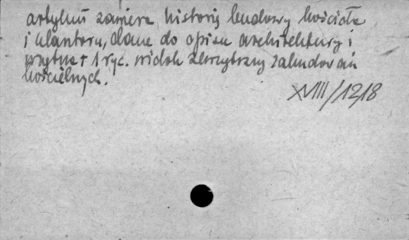 artykuł zawiera historię budowy kościoła
i klasztoru, dane do opisu architektury i
wnętrz + 1 ryc. widok zewnętrzny zabudowań
kościelnych.
XVIII/1218